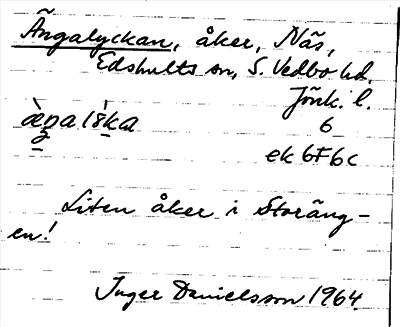 Ängalyckan, åker, Näs,
Edshults sn, S. Vedbo hd.
Jönk. l.
6
ek 6F6c
Liten åker i Storäng-
en!
Inger Danielsson 1964.